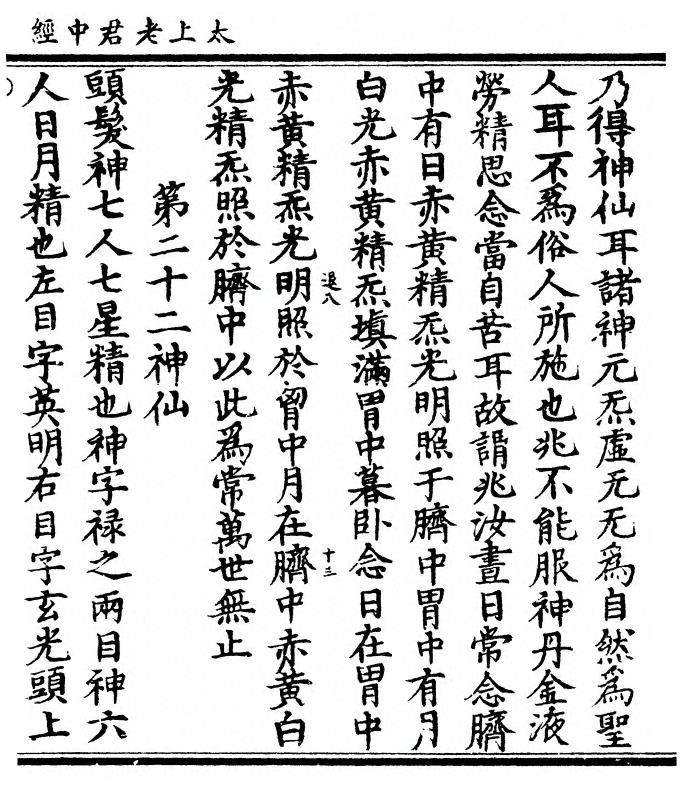 太上老君中經
乃得神仙耳諸神元炁虛无无爲自然爲聖
人耳不爲俗人所施也兆不能服神丹金液
勞精思念當自苦耳故謂兆汝晝日常念臍
中有日赤黄精炁光明照于臍中胃中有月
白光赤黄精炁填滿胃中暮卧念日在胃中
退八 十三
赤黄精炁光明照於胷中月在臍中赤黄白
光精炁照於臍中以此爲常萬世無止
第二十二神仙
頭髮神七人七星精也神字禄之兩目神六
人日月精也左目字英明右目字玄光頭上